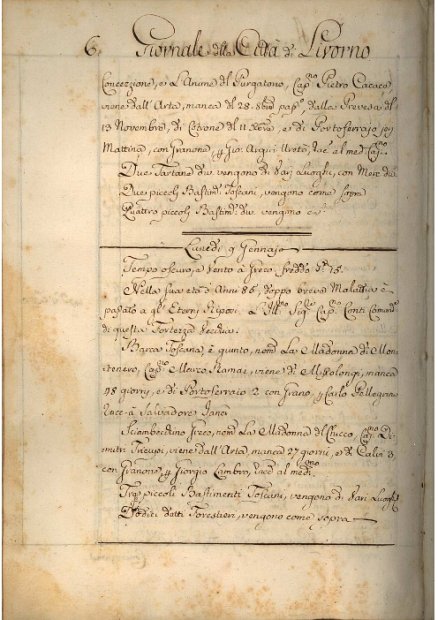 6. Giornale della Città di Livorno
Concezzione, e L'Anime del Purgatorio, Cap.no Pietro Cacace
viene dall'Arta, manca dal 28. dalla Prevesa dal
13 Novembre, di Cotrone del 11 e di Portoferrajo jeri
Mattina, con Granone, p Gio. al med.
Due Tartane div. vengono di varj Luoghi, con Merc. div.
Due piccoli Bastim.ti Toscani, vengono come sopra
Quattro piccoli Bastim.ti div. vengono
Lunedi 9 Gennajo
Tempo oscuro, e Vento à Greco, freddo 15.
Nella sua età d'Anni 86, doppo breve Malattia è
passato a gl'Eterni Riposi L'Ill.mo Sig.re Cap.no Conti
di questa Fortezza Vecchia.
Barca Toscana, è quinto, nom. La Madonna di Mon
tenero, Cap.no Marco viene di Missolongi, manca
48 giorni, e di Portoferraio 2 con Grano, p Carlo Pellegrino
à Salvadore
Sciambecchino Greco, nom. La Madonna del Cap.no Di
mitri viene dall'Arta, manca 27 giorni, e di 3.
con Granone, p Giorgio al med.
Tre piccoli Bastimenti Toscani, vengono di varj Luoghi
detti Forestieri, vengono come sopra